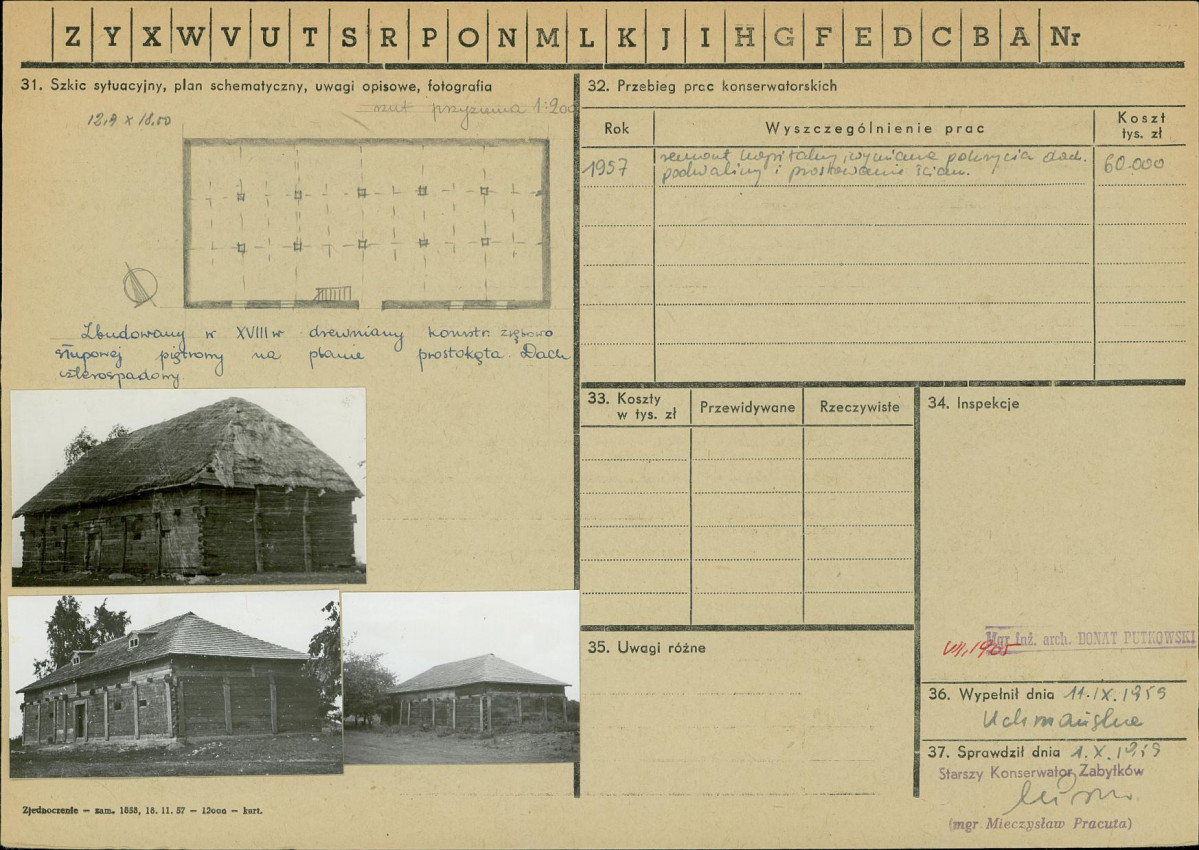 Z Y X W V U T S R P O N M L K J I H G F E D C B A Nr
31. Szkic sytuacyjny, plan schematyczny, uwagi opisowe, fotografia
rzut przyziemia 1:200
12,9 x 18.00
Zbudowany w XVIII w drewniany konstr. zrębowo
słupowej piętrowy na planie prostokąta Dach
czterospadowy.
Zjednoczenie — zam. 1858, 18. 11. 57 — 12000 — kart.
32. Przebieg prac konserwatorskich
Rok
Wyszczególnienie prac
Koszt
tys. zł
1957
remont kapitalny, wymiana pokrycia dach.
podwaliny i prostowanie ścian.
60.000
33. Koszty
w tys. zł
Przewidywane
Rzeczywiste
34. Inspekcje
Mgr inż. arch. DONAT PUTKOWSKI
35. Uwagi różne
36. Wypełnił dnia 11.IX.1959
37. Sprawdził dnia 1.X.1959
Starszy Konserwator Zabytków
(mgr Mieczysław Pracuta)